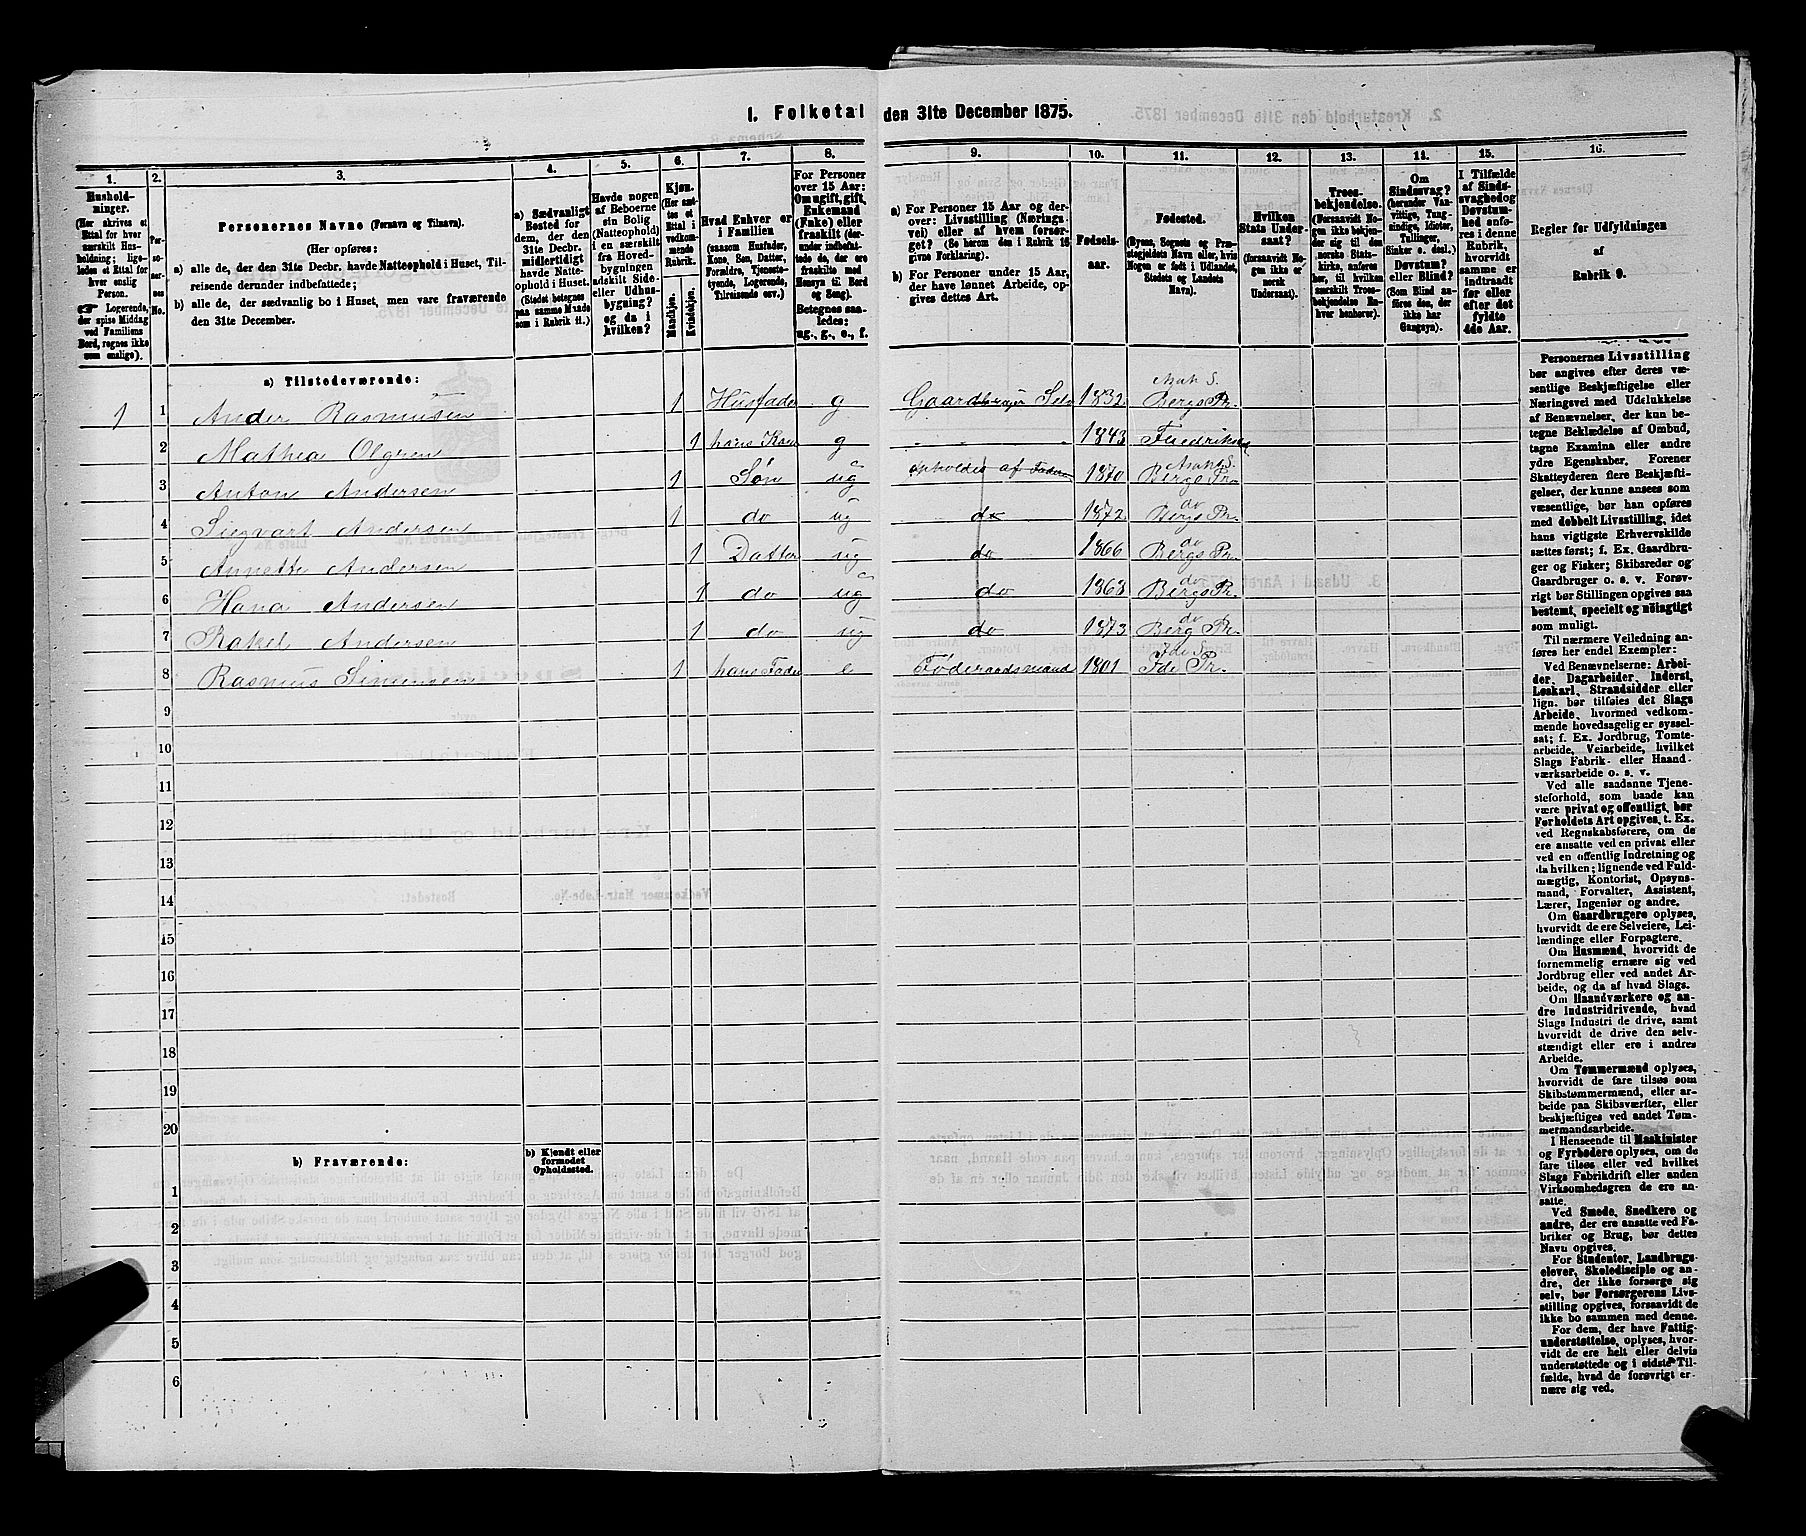 1. Folketal den 31te December 1875.
1. 2. 3. 4. 5. 6. 7. 8. 9. 10. 11. 12. 13. 14. 15. 16.
Hushold-
ninger.
(Her skrives et
Ettal for hver
særskilt Hus-
holdning; lige-
ledes et Ettal for
hver enslig
Person.
☛ Logerende,
der spise Middag
ved Familiens
Bord, regnes ikke
som enslige).
Per-
soner-
nes
No.
Personernes Navne (Fornavn og Tilnavn).
(Her opføres:
a) alle de, der den 31te Decbr. havde Natteophold i Huset, Til-
reisende derunder indbefattede;
b) alle de, der sædvanlig bo i Huset, men vare fraværende
den 31te December.
a) Sædvanligt
Bosted for
dem, der den
31te Decbr.
midlertidigt
havde Natte-
ophold i Huset.
(Stedet betegnes
paa samme Maade
som i Rubrik 11.)
Havde nogen
af Beboerne
sin Bolig
(Natteophold)
i en særskilt
fra Hoved-
bygningen
adskilt Side-
eller Udhus-
bygning?
og da i
hvilken?
Kjøn.
(Her sæt-
tes et
Ettal i
vedkom-
mende
Rubrik.
Mandkjøn.
Kvindekjøn.
Hvad Enhver er
i Familien
(saasom Husfader,
Kone, Søn, Datter,
Forældre, Tjeneste-
tyende, Logerende,
Tilreisende osv.)
For Personer
over 15 Aar:
Om ugift, gift,
Enkemand
(Enke) eller
fraskilt (der-
under indbefat-
tede de, der ere
fraskilte med
Hensyn til Bord
og Seng).
Betegnes saa-
ledes:
ug., g., e., f.
a) For Personer 15 Aar og der-
over: Livsstilling (Nærings-
vei) eller af hvem forsør-
get? (Se herom den i Rubrik 16
givne Forklaring).
b) For Personer under 15 Aar,
der have lønnet Arbeide, op-
gives dettes Art.
Fødsels-
aar.
Fødested.
(Byens, Sognets og Præ-
stegjeldets Navn eller, hvis
Nogen er født i Udlandet,
Stedets og Landets
Navn).
Hvilken
Stats Under-
saat?
(Forsaavidt No-
gen ikke er
norsk
Undersaat).
Troes-
bekjendelse.
(Forsaavidt No-
gen ikke bekjen-
der sig til den
norske Stats-
kirke, anføres
her, til hvilken
særskilt Troes-
bekjendelse En-
hver henhører).
Om
Sindssvag?
(herunder Van-
vittige, Tung-
sindige, Idioter,
Tullinger,
Sinker o. desl.).
Døvstum?
eller Blind?
(Som Blind an-
føres den, der
ikke har
Gangsyn).
I Tilfælde
af Sinds-
svaghed og
Døvstum-
hed anfø-
res i denne
Rubrik,
hvorvidt
samme er
indtraadt
før eller
efter det
fyldte
4de Aar.
Regler for Udfyldningen
af
Rubrik 9.
a) Tilstedeværende:
1 1 Ander Rasmusen 1 Husfader g Gaardbruger Selv 1832 Asak S. Bergs Pr.
2 Mathea Olgren 1 hans Kone g 1843 Fredrikshald
3 Anton Andersen 1 Søn ug opholdes af Faderen 1870 Asak S. Bergs Pr.
4 Siegvart Andersen 1 do ug do 1872 do Bergs Pr.
5 Annette Andersen 1 Datter ug do 1866 do Bergs Pr.
6 Hana Andersen 1 do ug do 1868 do Bergs Pr.
7 Rakel Andersen 1 do ug do 1873 do Berg Pr.
8 Rasmus Simensen 1 hans Fader e Føderaadsmand 1801 Ide S. Ide Pr.
9
10
11
12
13
14
15
16
17
18
19
20
b) Fraværende:
b) Kjendt eller
formodet
Opholdssted.
1
2
3
4
5
6
Personernes Livsstilling
bør angives efter deres væ-
sentlige Beskjæftigelse eller
Næringsvei med Udelukkelse
af Benævnelser, der kun be-
tegne Beklædelse af Ombud,
tagne Examina eller andre
ydre Egenskaber. Forener
Skatteyderen flere Beskjæfti-
gelser, der kunne ansees som
væsentlige, bør han opføres
med dobbelt Livsstilling, idet
hans vigtigste Erhvervskilde
sættes først; f. Ex. Gaardbru-
ger og Fisker; Skibsreder og
Gaardbruger o. s. v. Forøv-
rigt bør Stillingen opgives saa
bestemt, specielt og nøiagtigt
som muligt.
Til nærmere Veiledning an-
føres her endel Exempler:
Ved Benævnelserne: Arbei-
der, Dagarbeider, Inderst,
Løskarl, Strandsidder eller
lign. bør tilføies det Slags
Arbeide, hvormed vedkom-
mende hovedsagelig er syssel-
sat; f. Ex. Jordbrug, Tomte-
arbeide, Veiarbeide, hvilket
Slags Fabrik- eller Haand-
værksarbeide o. s. v.
Ved alle saadanne Tjene-
steforhold, som baade kan
være privat og offentligt, bør
Forholdets Art opgives, t. Ex.
ved Regnskabsførere, om de
ere ansatte ved en privat eller
ved en offentlig Indretning og
da hvilken; lignende ved Fuld-
mægtig, Kontorist, Opsyns-
mand, Forvalter, Assistent,
Lærer, Ingeniør og andre.
Om Gaardbrugere oplyses,
hvorvidt de ere Selveiere, Lei-
lændinge eller Forpagtere.
Om Husmænd, hvorvidt de
fornemmelig ernære sig ved
Jordbrug eller ved andet Ar-
beide, og da af hvad Slags.
Om Haandværkere og an-
dre Industridrivende, hvad
Slags Industri de drive, samt
hvorvidt de drive den selv-
stændigt eller ere i andres
Arbeide.
Om Tømmermænd oplyses,
hvorvidt de fare tilsøs som
Skibstømmermænd, eller ar-
beide paa Skibsværfter, eller
beskjæftiges ved andet Tøm-
mermandsarbeide.
I Henseende til Maskinister
og Fyrbødere oplyses, om de
fare tilsøs eller ved hvilket
Slags Fabrikdrift eller anden
Virksomhedsgren de ere an-
satte.
Ved Smede, Snedkere og
andre, der ere ansatte ved Fa-
briker og Brug, bør dettes
Navn opgives.
For Studenter, Landbrugs-
elever, Skoledisciple og an-
dre, der ikke forsørge sig
selv, bør Forsørgerens Livs-
stilling opgives, forsaavidt de
ikke bo sammen med denne.
For dem, der have Fattig-
understøttelse, oplyses, hvor-
vidt de ere helt eller delvis
understøttede og i sidste Til-
fælde, hvad de forøvrigt er-
nære sig ved.